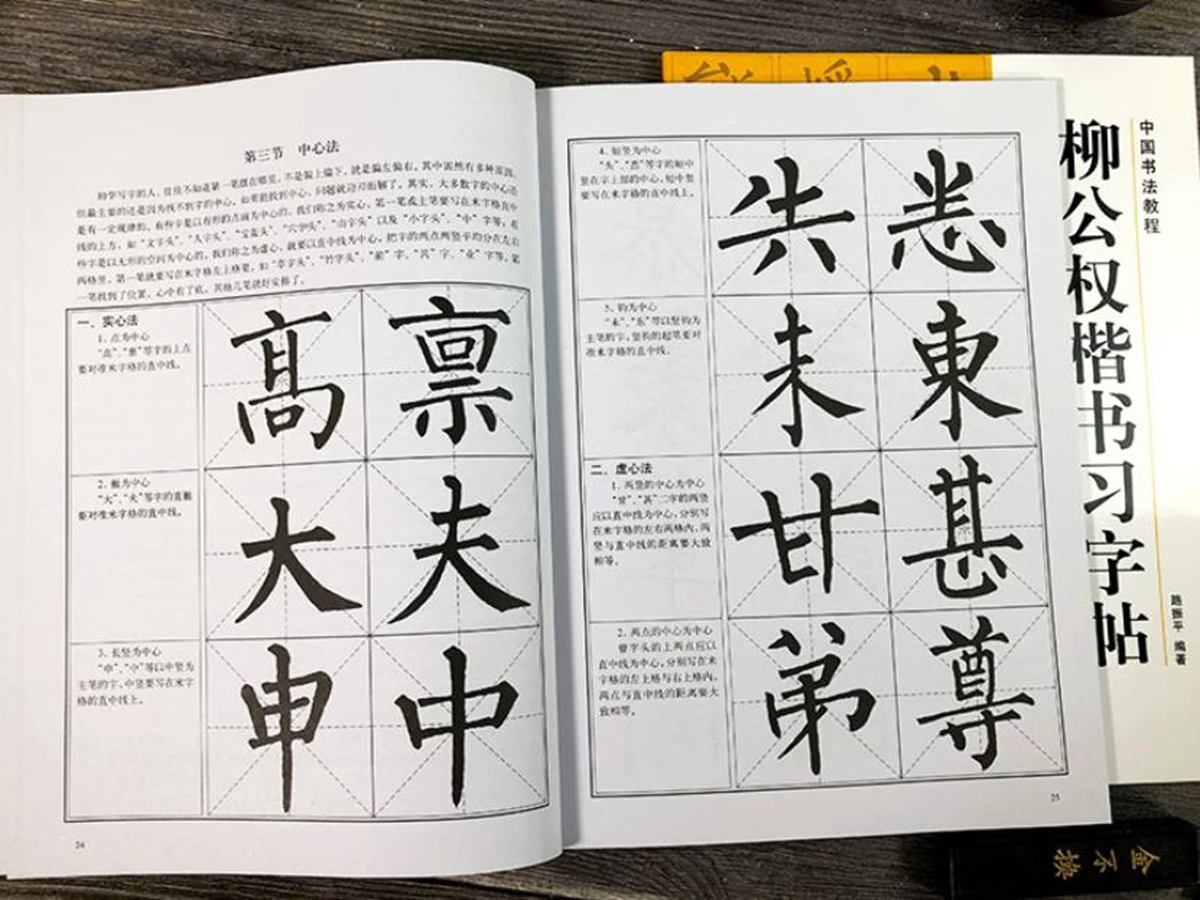 第三节 中心法
初学写字的人，往往不知道第一笔摆在哪里，不是偏上偏下，就是偏左偏右。其中固然有多种原因，
但最主要的还是因为找不到字的中心，如果能找到中心，问题就迎刃而解了。其实，大多数字的中心还
是有一定规律的。有些字是以有形的点画为中心的，我们称之为实心，第一笔或上笔要写在米字格直中
线的上方，如“文字头”、“人字头”、“宝盖头”、“六字头”、“山字头”以及“小字头”、“中”字等。有
些字是以无形的空间为中心的，我们称之为虚心，就要以直中线为中心，把字的两点两竖平均分在左右
两格里，第一笔就要写在米字格左上格里，如“草字头”、“竹字头”、“前”字、“其”字、“业”字等。第
一笔找到了位置，心中有了底，其他几笔就好安排了。
一、实心法
1．点为中心
“高”、“禀”等字的上点
要对准米字格的直中线。
高 禀
2．撇为中心
“大”、“夫”等字的直撇
要对准米字格的直中线。
大 夫
3．长竖为中心
“申”、“中”等以中竖为
主笔的字，中竖要写在米字
格的直中线上。
申 中
24
4．短竖为中心
竖在字上部的中心，短中竖
要写在米字格的直中线上。
5．钩为中心
“未”、“东”等以竖钩为
主笔的字，竖钩的起笔要对
准米字格的直中线。
未 東
二、虚心法
1．两竖的中心为中心
“甘”、“甚”二字的两竖
应以直中线为中心，分别写
在米字格的左右两格内，两
竖与直中线的距离要大致
相等。
甘 甚
2．两点的中心为中心
曾字头的上两点应以
直中线为中心，分别写在米
字格的左上格与右上格内，
两点与直中线的距离要大
致相等。
弟 尊
25
中国书法教程
柳公权楷书习字帖
路振平 编著
金不换